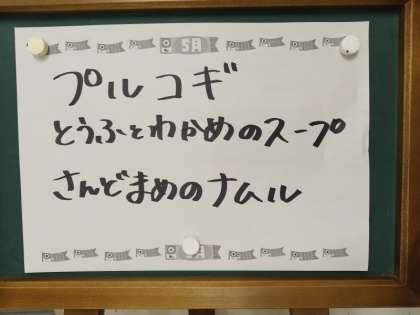 5月
プルコギ
とうふとわかめのスープ
さんどまめのナムル